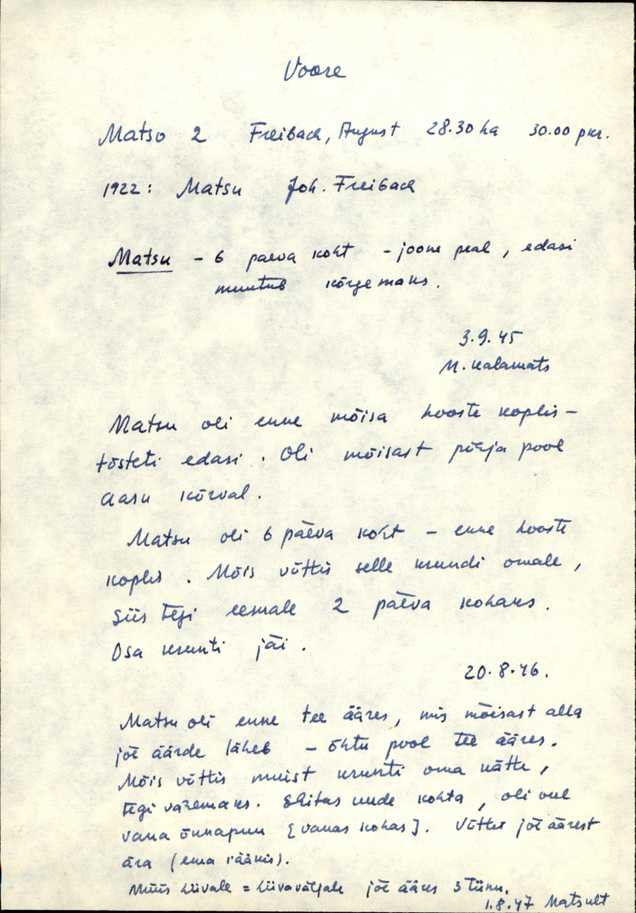 Voore
Matso 2 Freibach, August 28.30 ha 30.00 pkr.
1922: Matsu Joh. Freibach
Matsu - 6 päeva koht - joone peal, edasi
muutub kõrgemaks.
3.9.45
M. Kalamats
Matsu oli enne mõisa hooste koplis -
tõsteti edasi. Oli mõisast põhja pool
aasu kõrval.
Matsu oli 6 päeva koht - enne hooste
koplis. Mõis võttis selle krundi omale,
siis tegi eemale 2 päeva kohaks.
Osa krunti jäi.
20.8.46.
Matsu oli enne tee ääres, mis mõisast alla
jõe äärde läheb - õhtu pool tee ääres.
Mõis võttis muist krunti oma kätte,
tegi vähemaks. Ehitas uude kohta, oli veel
vana õunapuu [vanas kohas]. Võttis jõe äärest
ära (ema rääkis).
Müüs liivale = liivaväljale jõe ääres 3 tükki.
1.8.47 Matsult